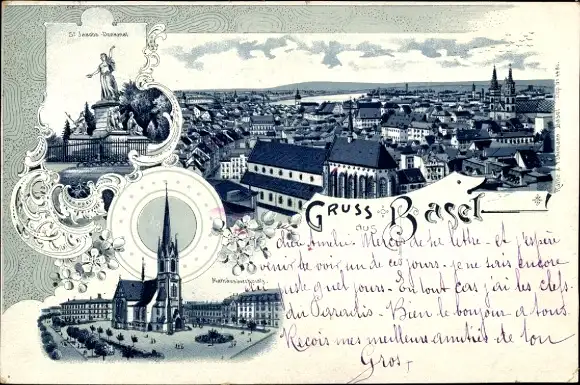 St Jacobs-Denkmal
Gruss
aus
Basel
Matthäuskirche
cher Amédée Merci de ta lettre - et j'espère
venir te voir un de ces jours - je ne sais encore
juste quel jours - En tout cas j'ai les clefs
du Paradis - Bien le bonjour a tous.
Reçois mes meilleures amitiés de ton
Gros